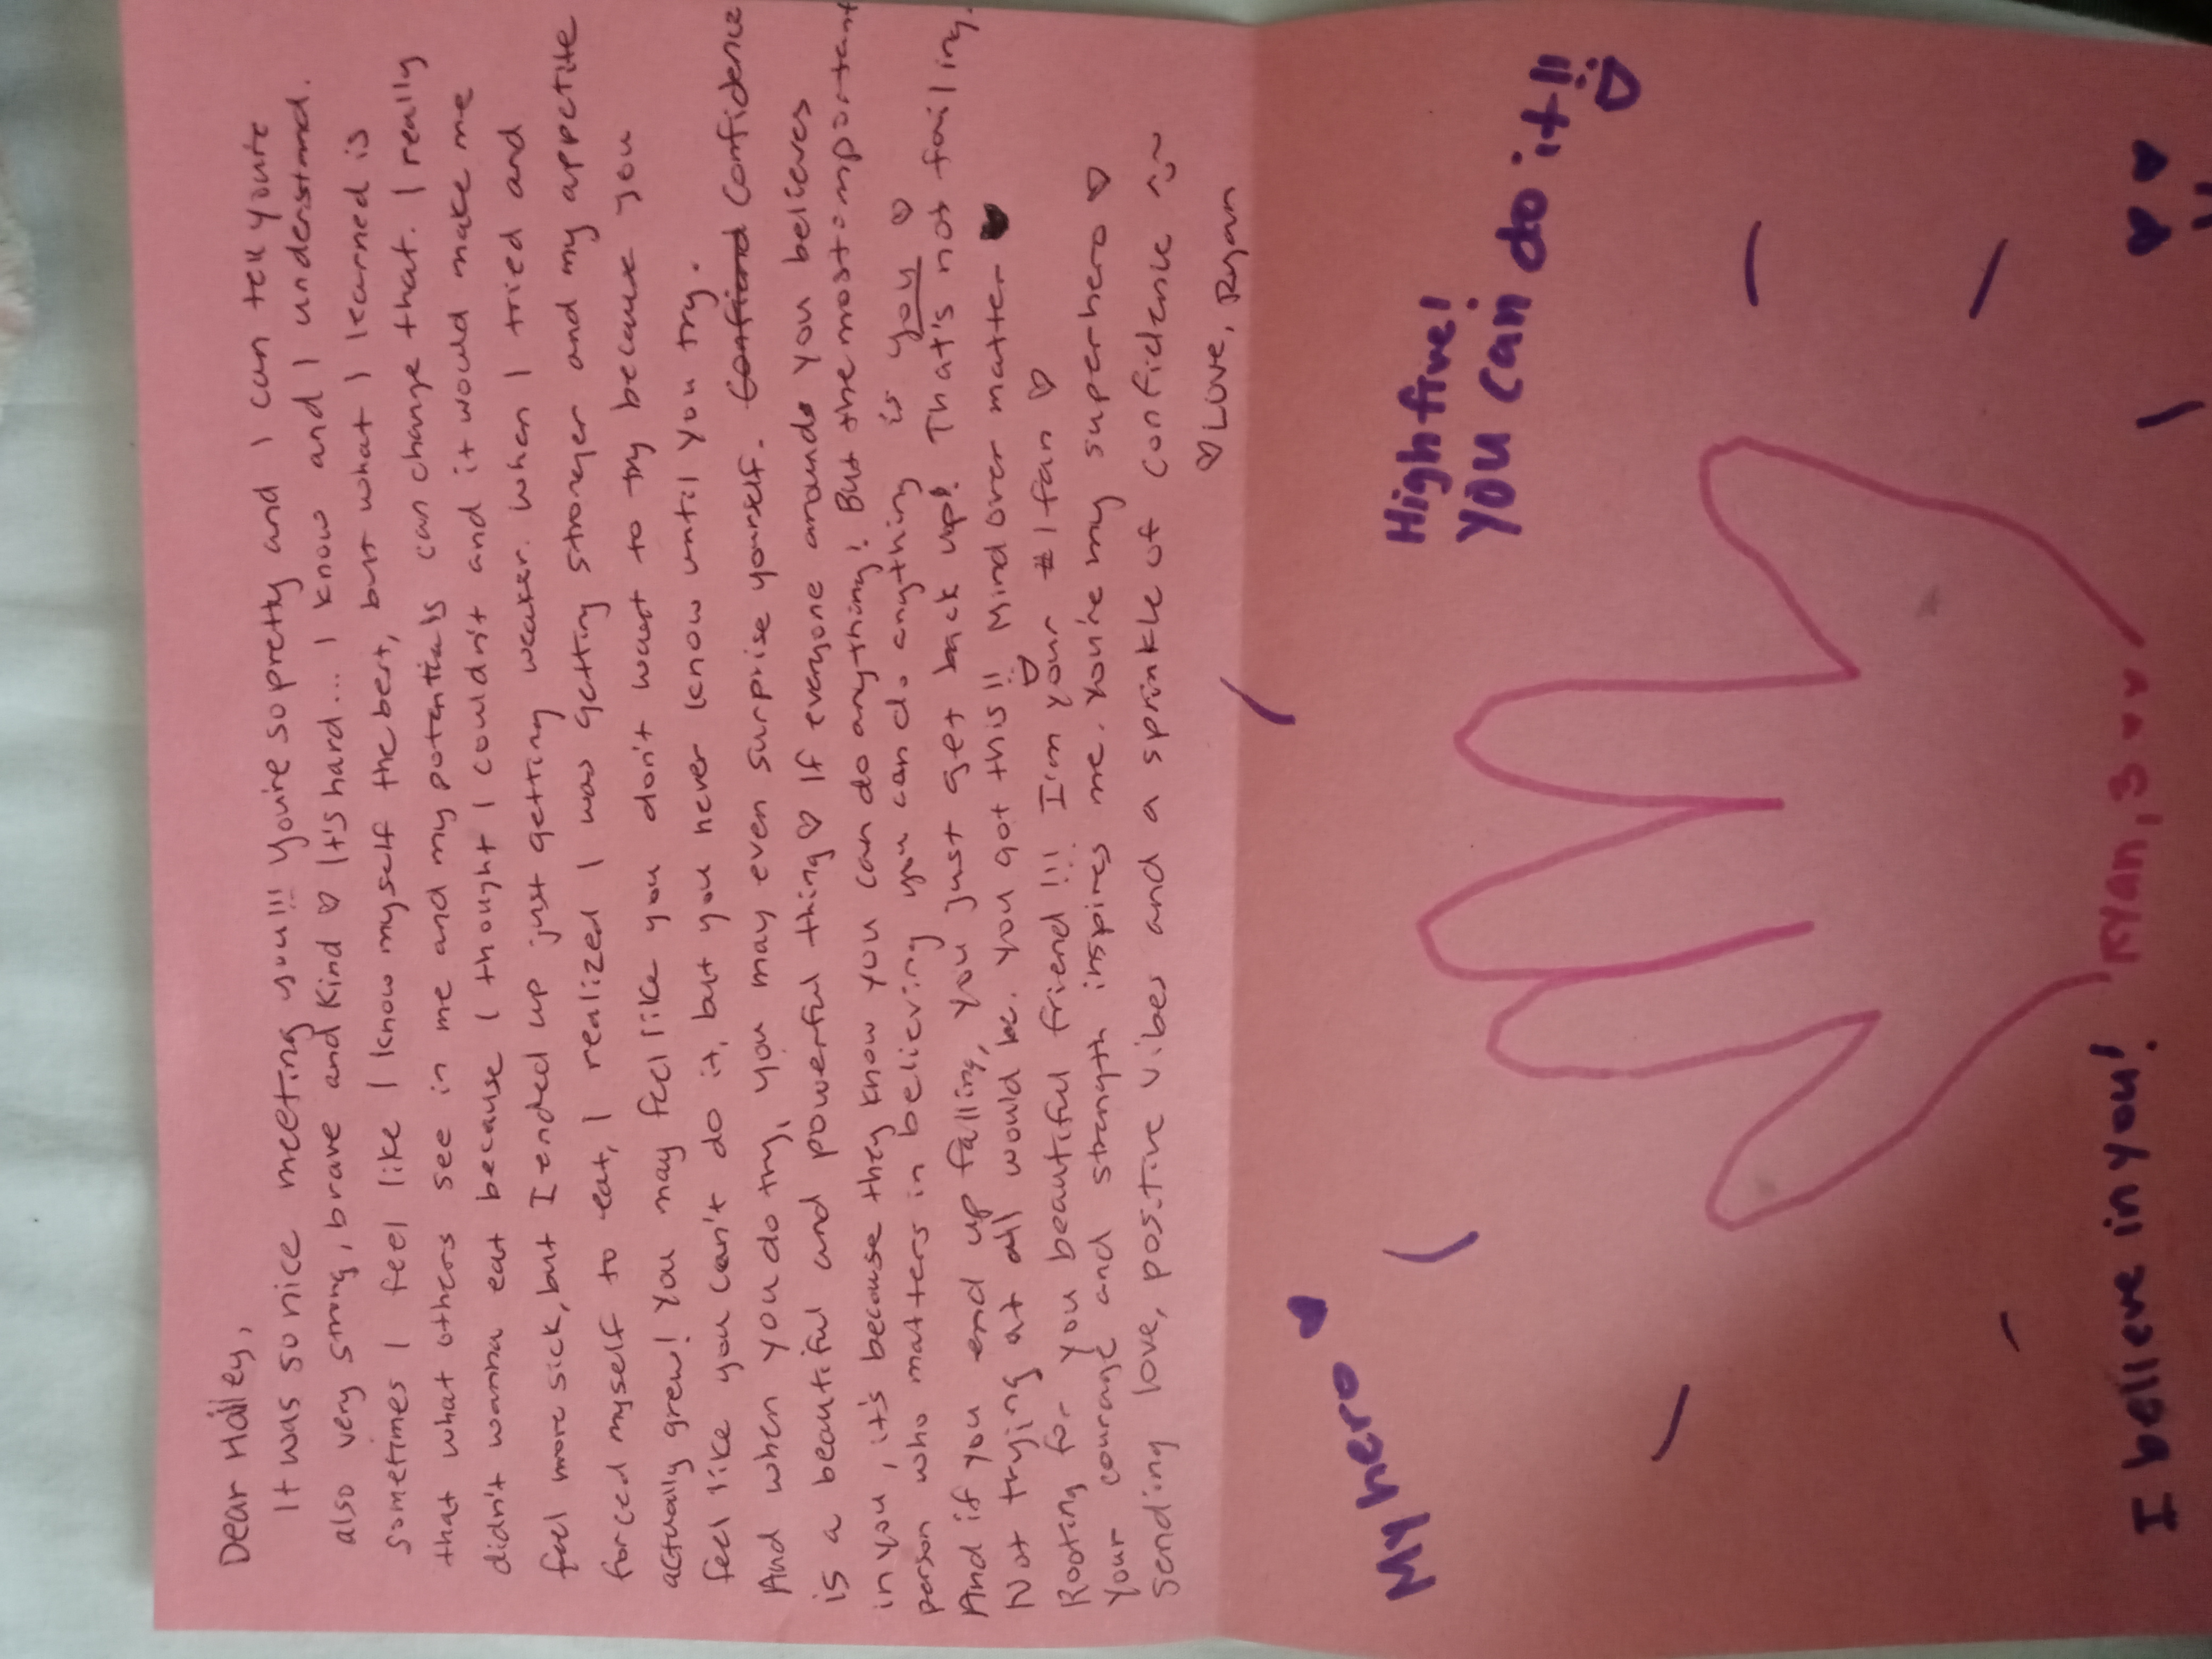 Dear Hailey,
It was so nice meeting you!!! You're so pretty and I can tell you're
also very strong, brave and kind ♡ It's hard... I know and I understand.
Sometimes I feel like I know myself the best, but what I learned is
that what others see in me and my potentials can change that. I really
didn't wanna eat because I thought I couldn't and it would make me
feel more sick, but I ended up just getting weaker. When I tried and
forced myself to eat, I realized I was getting stronger and my appetite
actually grew! You may feel like you don't want to try because you
feel like you can't do it, but you never know until you try.
And when you do try, you may even surprise yourself. Confidence
is a beautiful and powerful thing ♡ If everyone around you believes
in you, it's because they know you can do anything! But the most important
person who matters in believing you can do anything is you ♡
And if you end up falling, you just get back up! That's not failing.
Not trying at all would be. You got this!! Mind over matter ♥
Rooting for you beautiful friend!!! I'm your #1 fan ♡
Your courage and strength inspires me. You're my superhero ♡
Sending love, positive vibes and a sprinkle of confidence ~~
♡ Love, Ryan
My hero ♥
High five!
You can do it!!
Ryan, 3 ♥♥
I believe in you! ♥♥